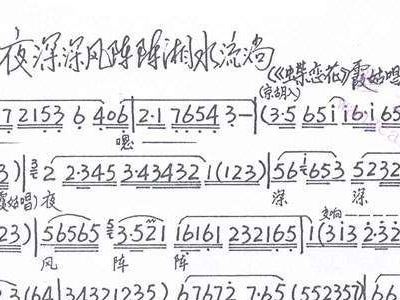 夜深深风阵阵湘水流淌
(《蝶恋花》霞姑唱
(京胡入)
7 2153 6 406 | 2·1 7654 3— | (3·5 65i i6·i 65
嗯
3) | 2 2·345 3·43432 1(123) | 56i653 5232
霞姑唱) 夜 深 深
交响
23) | 56565 3·521 i6161 232165 | 1(313 2·32
风 阵 阵
2 3(64 | 34321235) 67672 7·65 (552357)